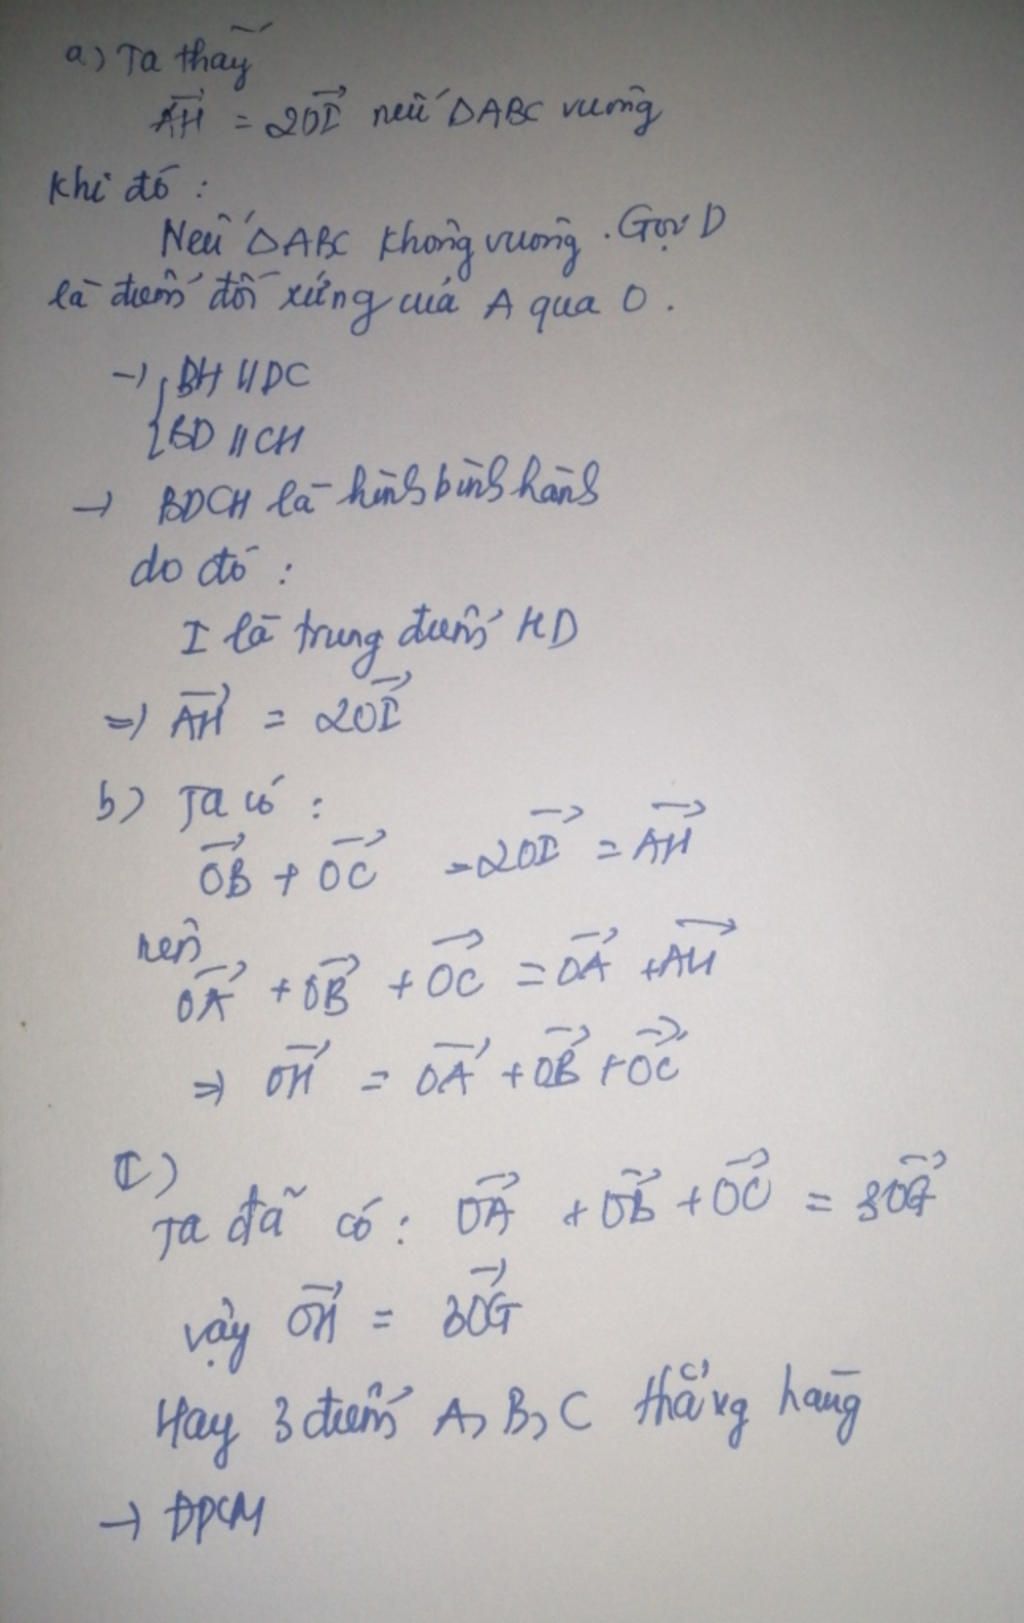 a) Ta thấy
$\overrightarrow{AH} = 2\overrightarrow{OI}$ nếu ΔABC vuông
Khi đó :
Nếu ΔABC không vuông . Gọi D
là điểm đối xứng của A qua O .
→ { BH // DC
{ BD // CH
→ BDCH là hình bình hành
do đó :
I là trung điểm HD
⇒ $\overrightarrow{AH} = 2\overrightarrow{OI}$
b) Ta có :
$\overrightarrow{OB} + \overrightarrow{OC} = 2\overrightarrow{OI} = \overrightarrow{AH}$
nên
$\overrightarrow{OA} + \overrightarrow{OB} + \overrightarrow{OC} = \overrightarrow{OA} + \overrightarrow{AH}$
⇒ $\overrightarrow{OH} = \overrightarrow{OA} + \overrightarrow{OB} + \overrightarrow{OC}$
c)
Ta đã có : $\overrightarrow{OA} + \overrightarrow{OB} + \overrightarrow{OC} = 3\overrightarrow{OG}$
vậy $\overrightarrow{OH} = 3\overrightarrow{OG}$
Hay 3 điểm A, B, C thẳng hàng
→ ĐPCM